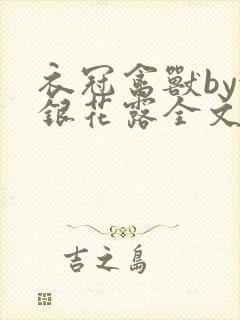 衣冠禽獸by
銀花露全文
吉之島